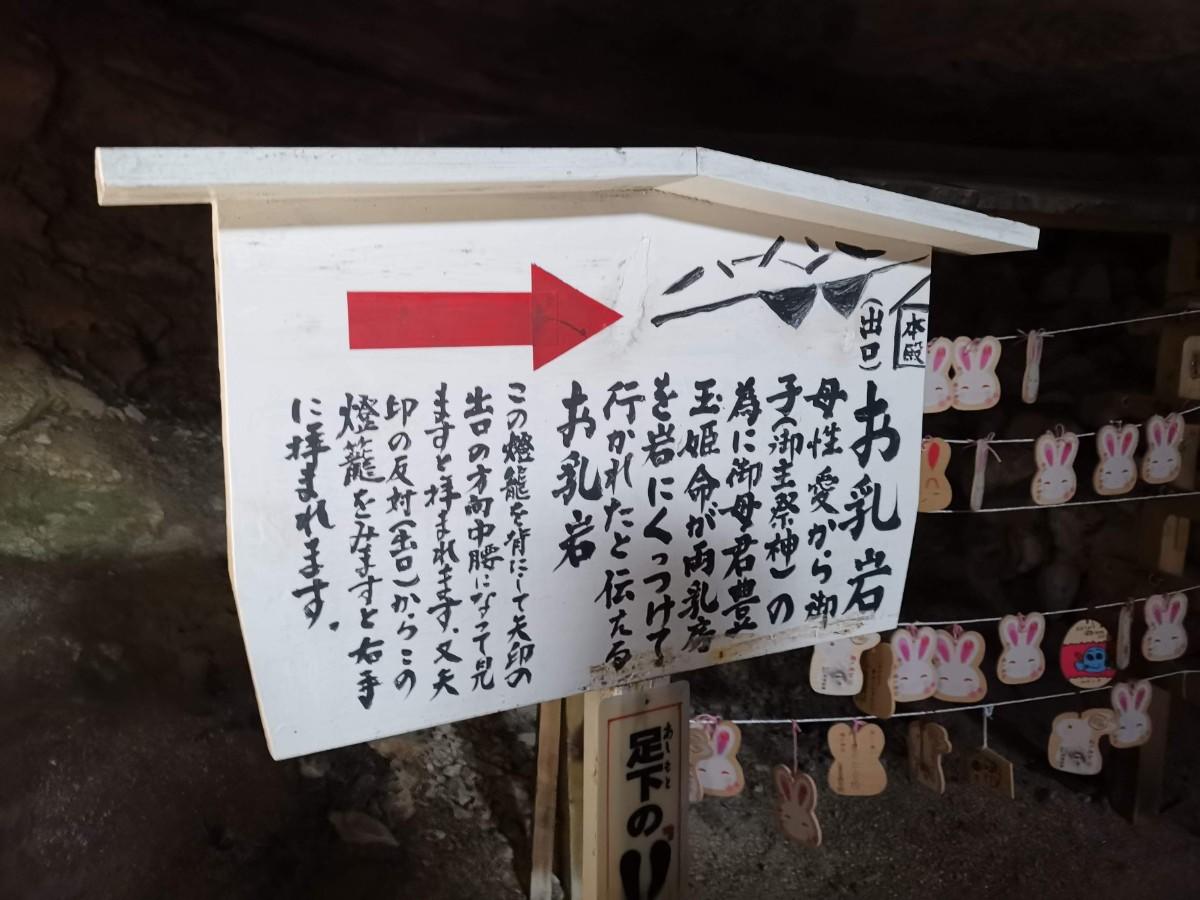 本殿
(出口)
お乳岩
母性愛から御
子(御主祭神)の
為に御母君豊
玉姫命が両乳房
を岩にくっつけて
行かれたと伝える
お乳岩
この燈籠を背にして矢印の
出口の方向中腰になって見
ますと拝まれます。又矢
印の反対(出口)からこの
燈籠をみますと右手
に拝まれます。
足下の
あしもと